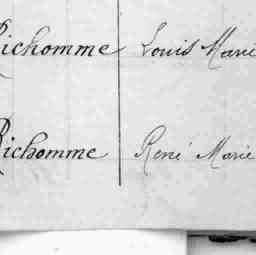 Richomme Louis Marie
Richomme René Marie